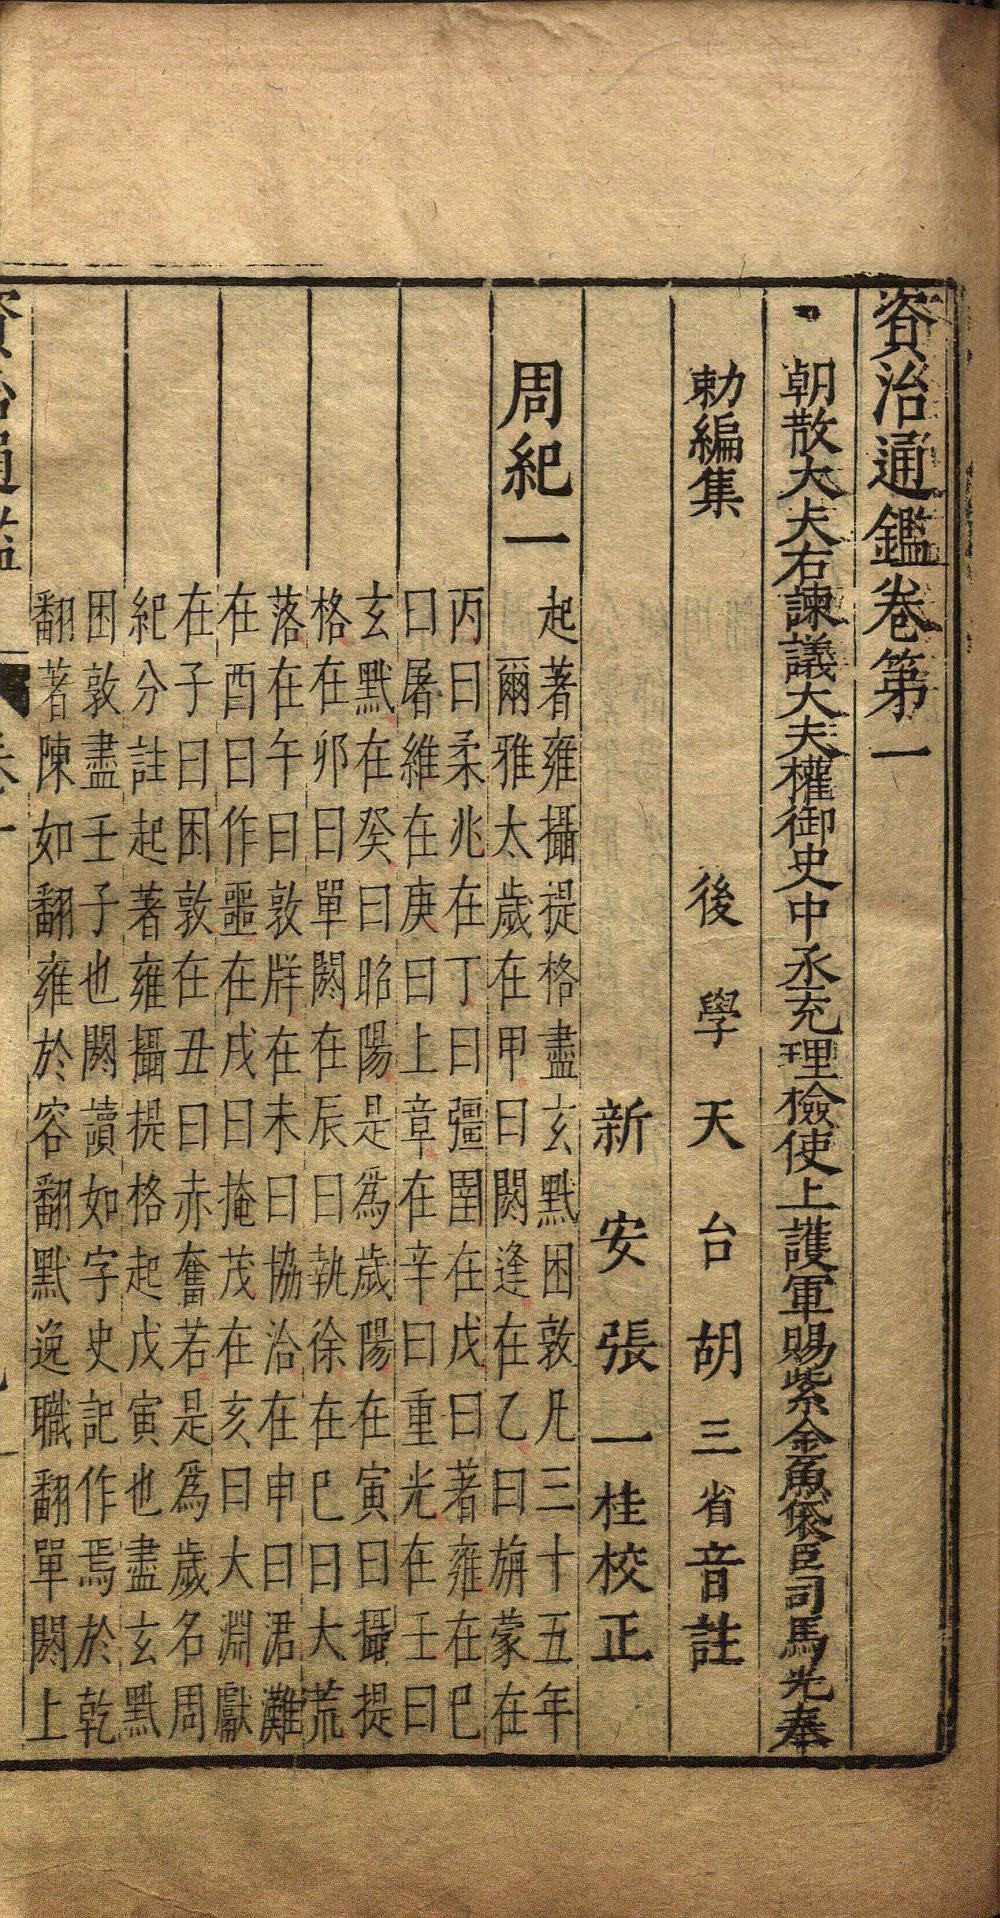 資治通鑑卷第一
朝散大夫右諫議大夫權御史中丞充理檢使上護軍賜紫金魚袋臣司馬光奉
勅編集 後學天台胡三省音註
新安張一桂校正
周紀一
起著雍攝提格盡玄黓困敦凡三十五年
爾雅太歲在甲曰閼逢在乙曰旃蒙在
丙曰柔兆在丁曰彊圉在戊曰著雍在巳
曰屠維在庚曰上章在辛曰重光在壬曰
玄黓在癸曰昭陽是爲歲陽在寅曰攝提
格在卯曰單閼在辰曰執徐在巳曰大荒
落在午曰敦牂在未曰協洽在申曰涒灘
在酉曰作噩在戌曰掩茂在亥曰大淵獻
在子曰困敦在丑曰赤奮若是爲歲名周
紀分註起著雍攝提格起戊寅也盡玄黓
困敦盡壬子也閼讀如字史記作焉於乾
翻著陳如翻雍於容翻黓逸職翻單閼上